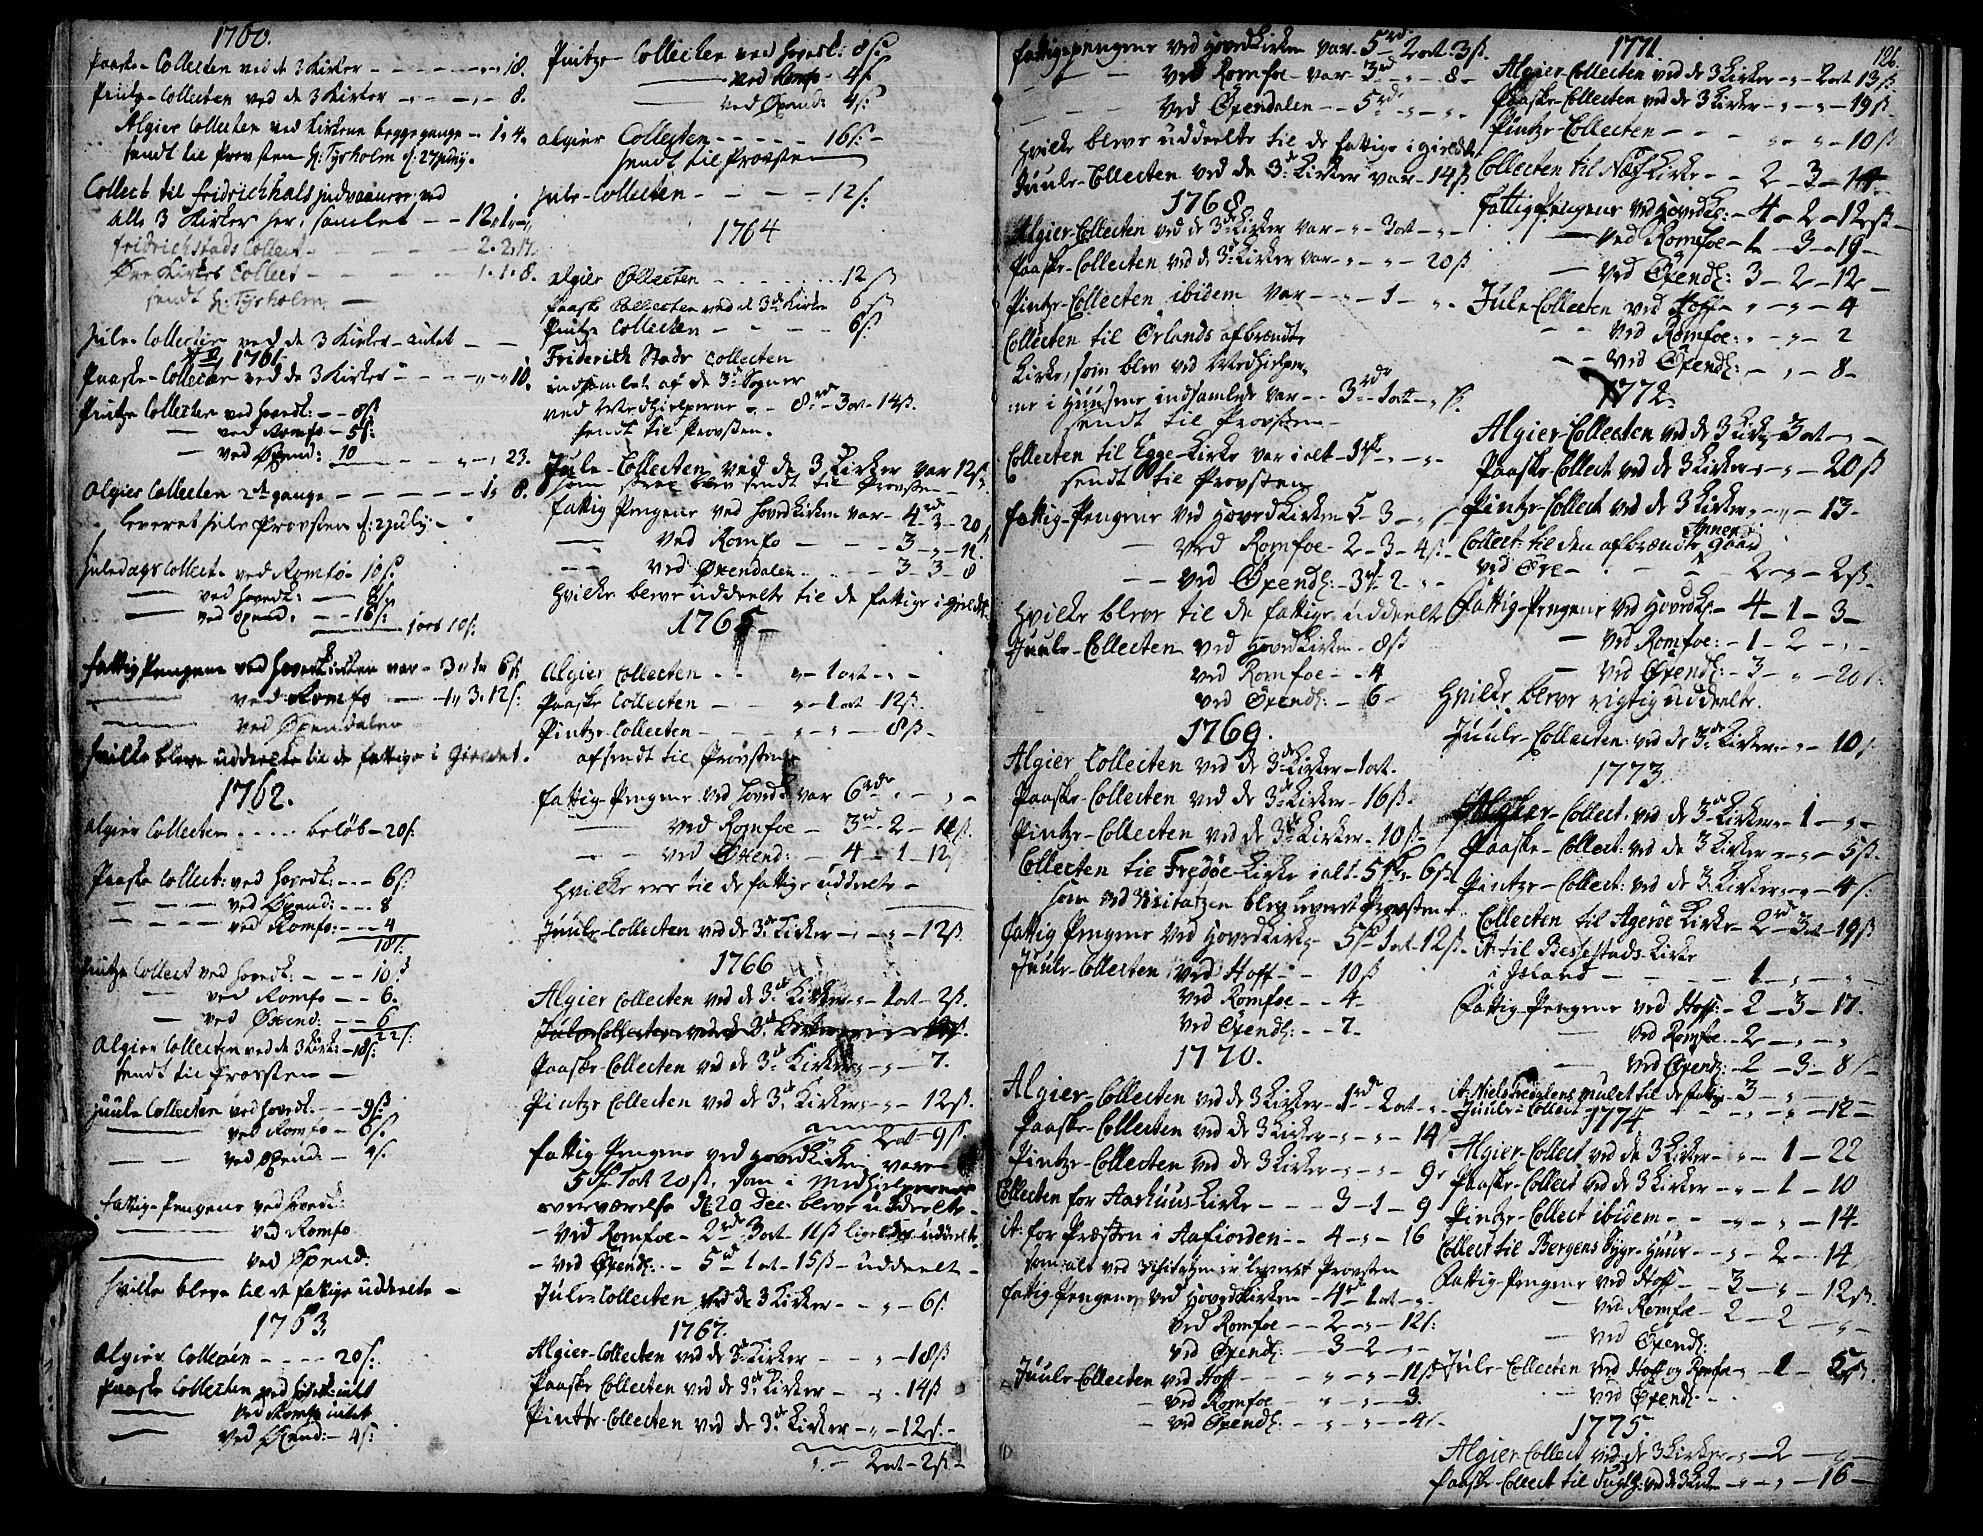 1760.
Paaske-Collecten ved de 3 Kirker - - - - - „ - 18.
Pintze-Collecten ved de 3 Kirker - - - „ - 8.
Algier Collecten ved Kirkerne begge gange - 1 „ 4.
sendt til Provsten H: Tyrholm d: 27 juny.
Collect til Fridrichhals indvaanere ved
alle 3 Kirker her, samlet - - 12 „ 1 „ - „
Fridrichstads Collect - - - 2. 2. 17.
Øre Kirkes Collect - - - 1. 1. 8.
sendt H: Tyrholm -
Jule-Collecten ved de 3 Kirker - intet - -
1761.
Paaske-Collecten ved de 3 Kirker - - - - „ - 18.
Pintze Collecten ved Hovedk: - - 8 ß
- ved Romfo - 5 ß:
- ved Øxend: 10 - - „ - 23.
Algier Collecten 2de gange - - - - - 1 „ 8.
leveret hele Provsten d: 2 july -
Juledags Collect. ved Romfo - 10 ß
- ved Hovedk: - 8 ß
- ved Øxend. - 16 ß:
1 ort 10 ß:
Fattig Pengene ved Hovedkirken var - 3 „ 1 „ 6 ß
- ved Romfo - 1 „ 3. 12 ß:
- ved Øxendalen
hvilke bleve uddeelte til de fattige i Gieldet.
1762.
Algier Collecten . . . . beløb - 20 ß.
Paaske Collect: ved Hovedk: - - - 6 ß:
- - - ved Øxend: - - - 8
- - - ved Romfo: - - - 4
18 ß.
Pintze Collect ved Hovedk: - - - 10 ß
- ved Romfo - - 6.
- ved Øxend: - - 6
22 ß:
Algier Collecten ved de 3 Kirker - 18 ß:
sendt til Provsten -
Juule Collecten ved Hovedk. - - 9 ß
- ved Romfo - 6 ß.
- ved Øxend: - 4 ß.
Fattig-Pengene ved Hovedk:
- ved Romfo
- ved Øxend.
hvilke bleve til de fattige uddeelte -
1763.
Algier Collecten - - - - 20 ß:
Paaske Collecten ved Hovedk: intet
- ved Romfo intet
- ved Øxend: - 4 ß:
Pintze-Collecten ved Hovedk: 8 ß:
- ved Romfo - 4 ß
- ved Øxend: 4 ß:
Algier Collecten - - - - - 16 ß: -
sendt til Provsten
Jule-Collecten - - - - 12 ß:
1764
Algier Collecten - - . . . . . 12 ß
Paaske Collecten ved de 3de Kirker 6 ß
Pintze Collecten - - - - - 6 ß.
Friderich Stads Collecten
indsamlet af de 3de Sogner
ved Medhielperne - - 8 rd - 3 ort - 14 ß.
sendt til Provsten.
Juule-Collecten ved de 3 Kirker var 12 ß.
som strax blev sendt til Provsten
Fattig Pengene ved Hovedkirken var - 4 rd - 3 - 20 ß
- ved Romfo - - - 3 - „ - 12.
- - ved Øxendalen . . - - 3 - 3 - 8
hvilke bleve uddeelte til de fattige i gieldet
1765
Algier Collecten - - „ - 1 ort - „ -
Paaske Collecten - - „ - 1 ort - 12 ß.
Pintze-Collecten - - - „ - „ - 8 ß -
afsendt til Provsten
Fattig-Pengene ved Hovedk var 6 rdr „ - „ -
- ved Romfoe - 3 rd - 2 - 12 ß.
- - ved Øxend: - 4 - 1 - 12
hvilke ere til de fattige uddeelte -
Juule-Collecten ved de 3de Kirker - „ - „ - 12 ß
1766
Algier Collecten ved de 3de Kirker - „ - 1 ort - 2 ß.
Paaske Collecten ved de 3de Kirker „ - „ - 7.
Pintze Collecten ved de 3de Kirker „ - „ - 12 ß.
2 ort - 9 ß.
Fattig Pengene ved Hovedkirken vare
5 rdr 1 ort 20 ß, som i Medhielpernes
overværelse d: 20 Dec. bleve uddeelte.
- Ved Romfoe - 2 rd 3 ort - 11 ß ligeledes uddeelt.
- ved Øxend: - 5 rd 1 ort - 15 ß - uddeelt -
Jule-Collecten ved de 3 Kirker - - „ - 6 ß.
1767.
Algier-Collecten ved de 3de Kirker - - „ - 18 ß
Paaske Collecten ved de 3de Kirker - - „ - 14 ß
Pintze-Collecten ved de 3de Kirker - „ - 12 ß. -
„ - 2 ort - 2 ß -
Fattigpengene ved Hovedkirken var 5 rd 2 ort 3 ß.
- - ved Romfoe - var 3 rd - „ - 8 -
- - ved Øxendalen - - 5 rdr „ - „ -
hvilke bleve uddeelte til de fattige i gieldet
Juule-Collecten ved de 3de Kirker var - 14 ß
1768.
Algier-Collecten ved de 3de Kirker var - „ - 3 ort - „ -
Paaske-Collecten ved de 3de Kirker var - „ - „ - 20 ß
Pintze-Collecten ibidem var - - „ - 1 - „ -
Collecten til Ørlands afbrændte
Kirke, som blev ved Medhielper-
ne i Huusene indsamlede var - - 3 rdr - 1 ort - „ ß.
sendt til Provsten -
Collecten til Egge-Kirke var i alt - 3 rdr - „ - „ -
sendt til Provsten
Fattig-Pengene ved Hovedkirken 5 - 3 - „ -
- ved Romfoe - 2 - 3 - 4 ß -
- - ved Øxend: - 3 rd 2 - „ -
hvilke bleve til de fattige uddeelte
Juule-Collecten ved Hovedkirken - 8 ß
ved Romfoe - - 4
ved Øxend: - 6 -
1769.
Algier Collecten ved de 3de Kirker - 1 ort.
Paaske-Collecten ved de 3de Kirker - 16 ß -
Pintze-Collecten ved de 3de Kirker - 10 ß -
Collecten til Fredøe-Kirke i alt - 5 rdr 6 ß
som ved Visitatzen blev leveret Provsten
Fattig Pengene ved Hovedkirke 5 rd - 1 ort - 12 ß -
Juule-Collecten ved Hoff - - 10 ß
ved Romfoe - - 4 -
ved Øxend: - - 7 -
1770.
Algier-Collecten ved de 3 Kirker - 1 rd - 2 ort - „ -
Paaske-Collecten ved de 3 Kirker - „ - „ - 14
Pintze-Collecten ved de 3 Kirker - „ - „ - 9
Collecten for Aarhuus-Kirke - - - 3 - 1 - 9
it: for Præsten i Aafiorden - - 4 - „ - 16
som alt ved Visitatzen er leveret Provsten
Fattig-Pengene ved Hovedkirken - 4 rd 1 ort - „ -
ved Romfoe - - 2 - „ - 12 ß:
ved Øxend: - 3 - 2 - „ -
Juule Collecten ved Hoff - - „ - „ - 11 ß
- ved Romfoe - „ - „ - 3.
- ved Øxend: - „ - „ - 4 ß -
1771.
126.
Algier-Collecten ved de 3 Kirker - „ - 2 ort 13 ß.
Paaske-Collecten ved de 3 Kirker - „ - „ - 19 ß.
Pintze-Collecten - - - „ - „ - 10 ß
Collecten til Næs-Kirke - - 2 - 3 - 14 -
Fattigpengene ved Hovedk: - 4 - 2 - 12 ß -
- ved Romfoe - 1 - 3 - 19 -
- ved Øxend: 3 - 2 - 12 -
Jule-Collecten ved Hoff - „ - „ - 4
- - ved Romfoe: - „ - 2
- - ved Øxend: - „ - 8 -
1772.
Algier-Collecten ved de 3 Kirk - 3 ort - „ -
Paaske-Collect ved de 3 Kirker - „ - „ - 20 ß
Pintze-Collect ved de 3 Kirker - „ - „ - 13 -
Collect: til den afbrændte gaard
ved Øre - - . - - 2 - „ - 2 ß -
Fattig-Pengene ved Hovedk: - 4 - 1 - 3 -
- ved Romfoe: - 1 - 2 - „ -
- ved Øxend: - 3 - „ - 20 ß.
hvilke bleve rigtig uddeelte.
Juule-Collecten ved de 3de Kirker - „ - „ - 10 ß.
1773
Algier-Collect: ved de 3de Kirker - 1 - „ -
Paaske-Collect: ved de 3 Kirker - „ - „ - 5 ß.
Pintze-Collect: ved de 3 Kirker - „ - „ - 4 ß.
Collecten til Agerøe Kirke - 2 rdr 3 ort - 19 ß
it: til Bessestads-Kirke
i Island - - - - 1 - „ - „ -
Fattig-Pengene ved Hoff: - 2 - 3 - 17.
- ved Romfoe - 2 - „ - „
- ved Øxend: - 2 - 3 - 8 ß -
Juule-Collect - - „ - „ - 12 -
1774
Algier-Collect ved de 3 Kirker - „ - 1 - 22
Paaske-Collect ved de 3 Kirker - „ - 1 - 10
Pintze-Collect ibidem - - - „ - „ - 14 -
Collect til Bergens Syge-Huus - - „ - 2 - 14
Fattig-Pengene ved Hoff - - 3 - „ - 12 ß.
- ved Romfoe - 2 - 2 - „ -
- ved Øxend:
Jule-Collecten ved Hoff og Romfoe - 1 -
- ved Øxend: - -
1775.
Algier Collect ved de 3 Kirker - „ - 2 - „ -
Paaske-Collect ved de 3 Kirker - „ - „ - 16 -